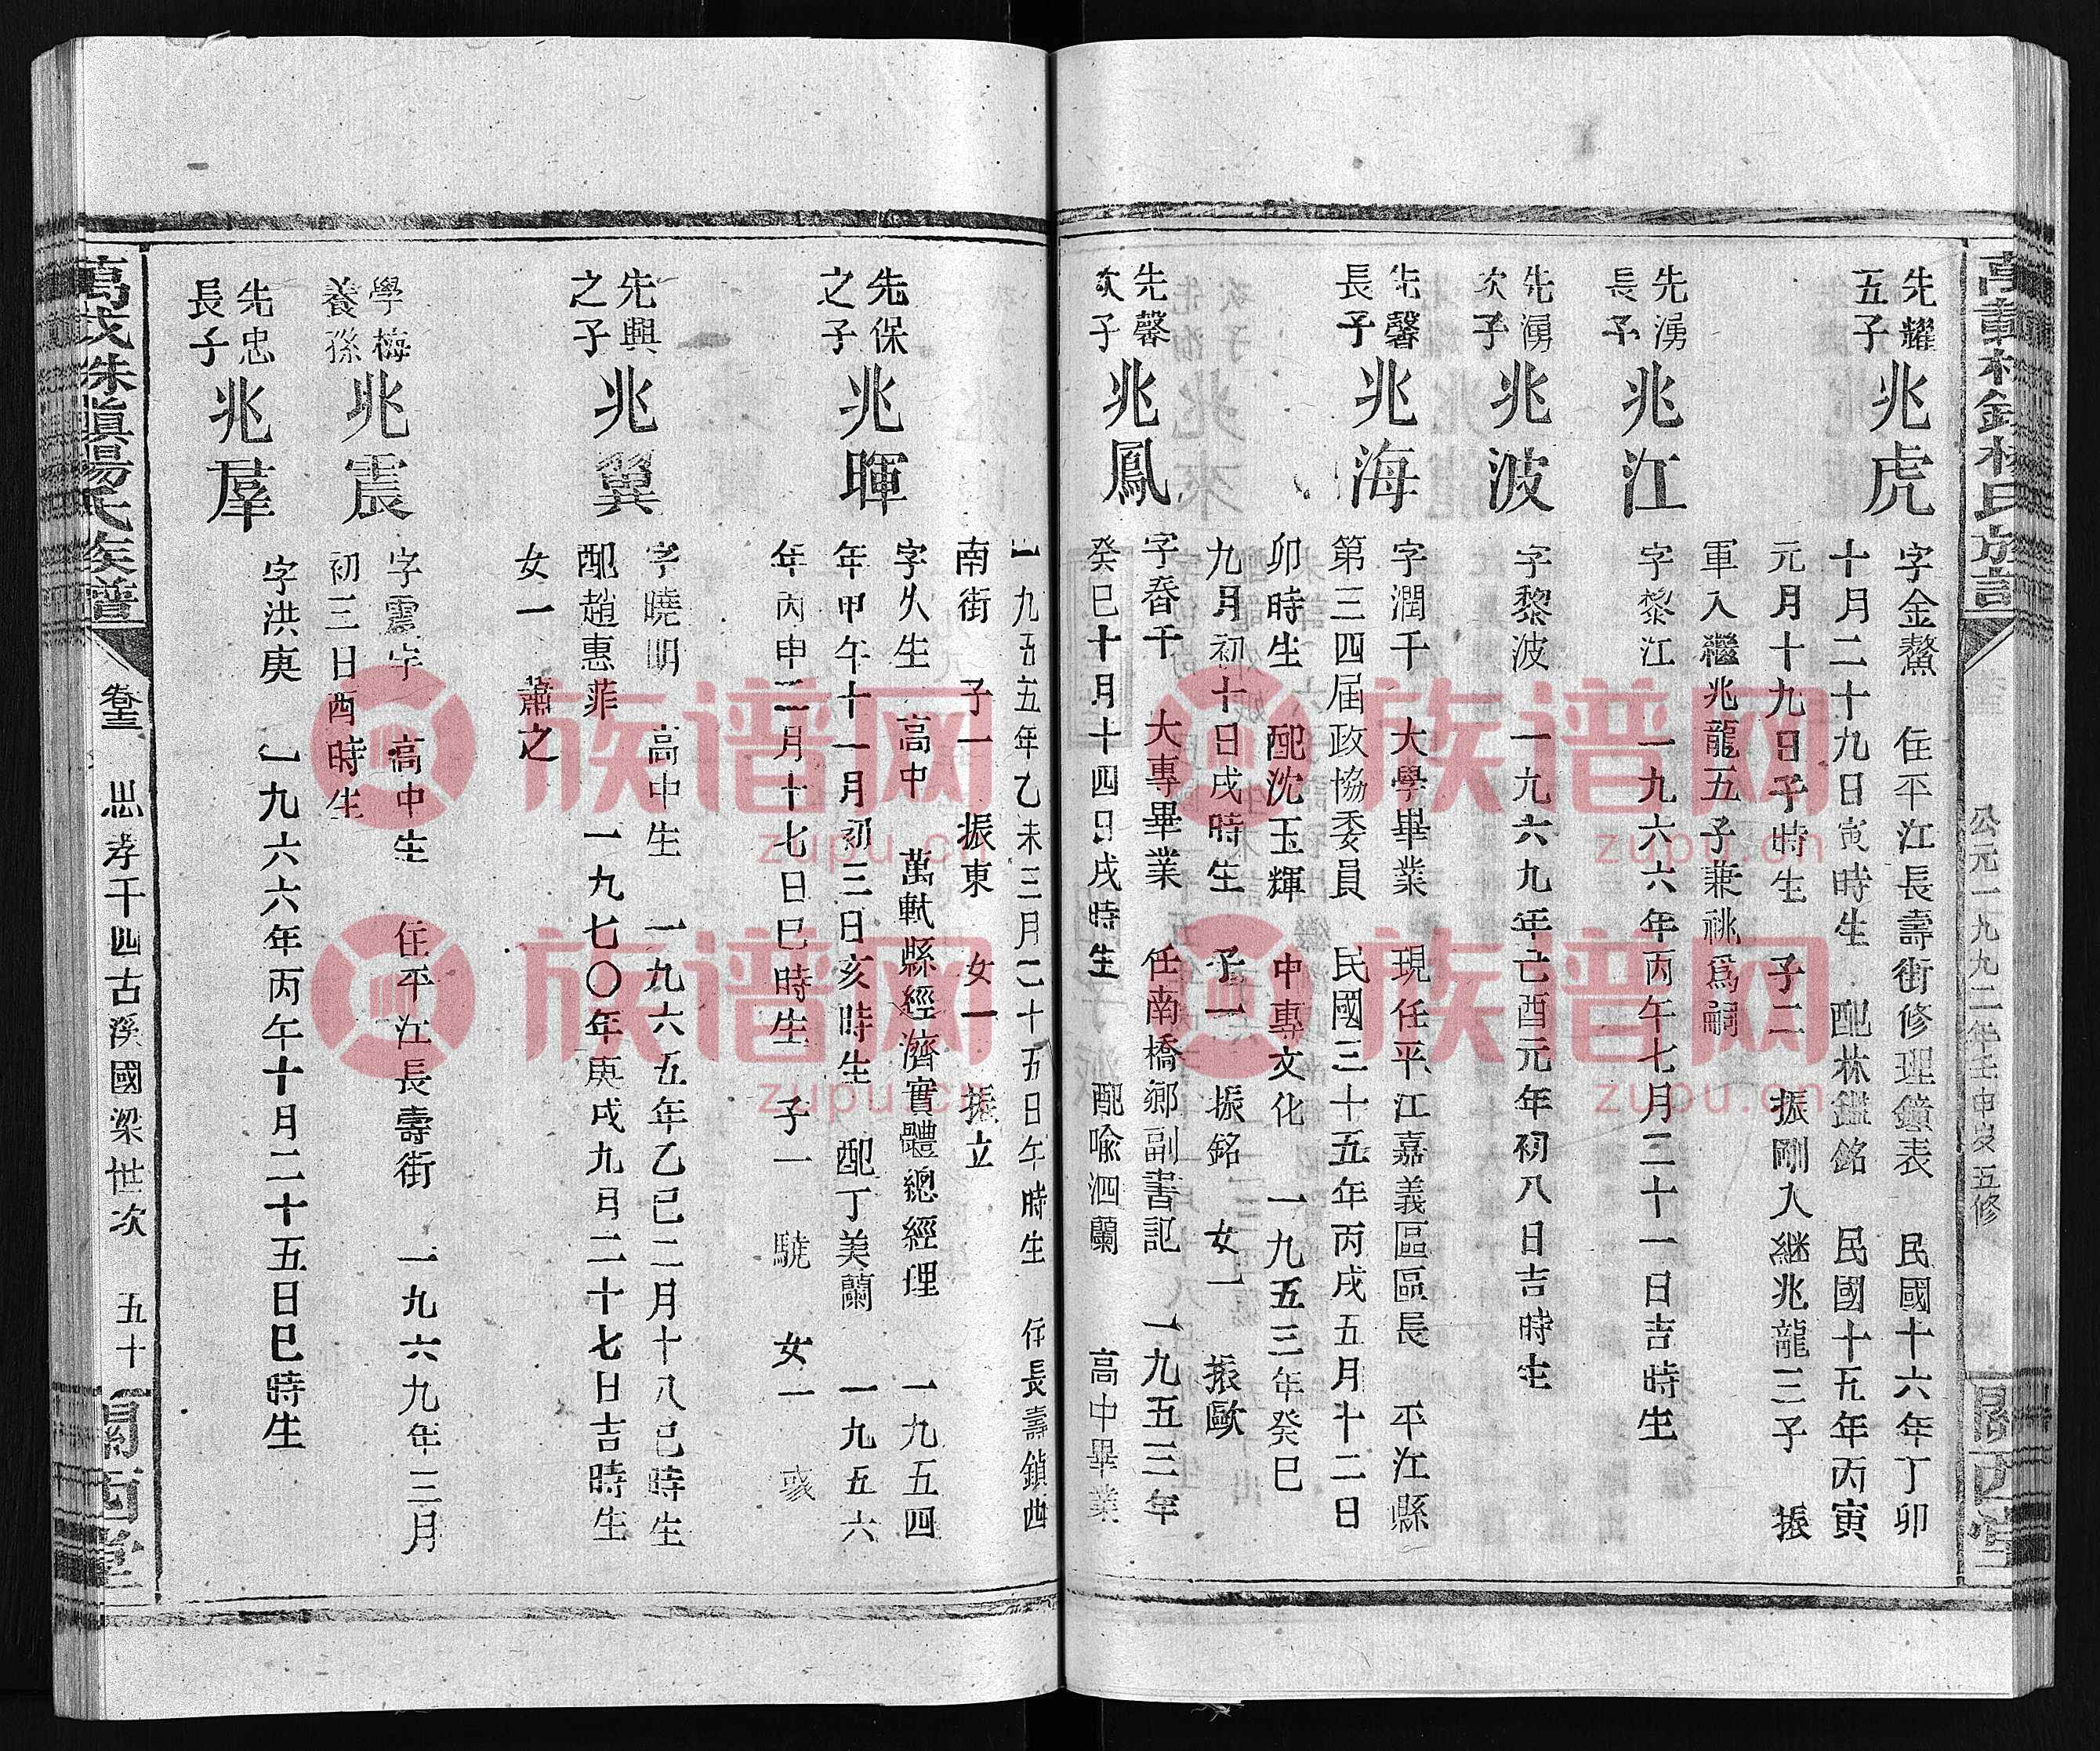 公元一九九二年壬申歲五修
關西堂
先耀五子
兆虎
字金鰲 住平江長壽街修理鐘表 民國十六年丁卯
十月二十九日寅時生 配林鑑銘 民國十五年丙寅
元月十九日子時生 子二 振剛入継兆龍三子 振
軍入繼兆龍五子兼祧爲嗣
先湧長子
兆江
字黎江 一九六六年丙午七月二十一日吉時生
先湧次子
兆波
字黎波 一九六九年己酉元年初八日吉時生
先馨長子
兆海
字潤千 大學畢業 現任平江嘉義區區長 平江縣
第三四屆政協委員 民國三十五年丙戌五月十二日
卯時生 配沈玉輝 中專文化 一九五三年癸巳
九月初十日戌時生 子一 振銘 女一 振歐
先馨次子
兆鳳
字春千 大專畢業 任南橋鄉副書記 一九五三年
癸巳十月十四日戌時生 配喩泗蘭 高中畢業
一九五五年乙未三月二十五日午時生 住長壽鎮西
南街 子一 振東 女一 振立
先保之子
兆暉
字久生 高中 萬軑縣經濟實體總經理 一九五四
年甲午十一月初三日亥時生 配丁美蘭 一九五六
年丙申二月十七日巳時生 子一 驍 女一
先興之子
兆翼
字曉明 高中生 一九六五年乙巳二月十八巳時生
配趙惠菲 一九七〇年庚戌九月二十七日吉時生
女一 蕭之
學梅養孫
兆震
字震宇 高中生 住平江長壽街 一九六九年三月
初三日酉時生
先忠長子
兆羣
字洪庚 一九六六年丙午十月二十五日巳時生
楊氏族譜
卷三
思孝千四古溪國梁世次
五十一
關西堂
族谱网
zupu.cn
族谱网
zupu.cn
族谱网
zupu.cn
族谱网
zupu.cn